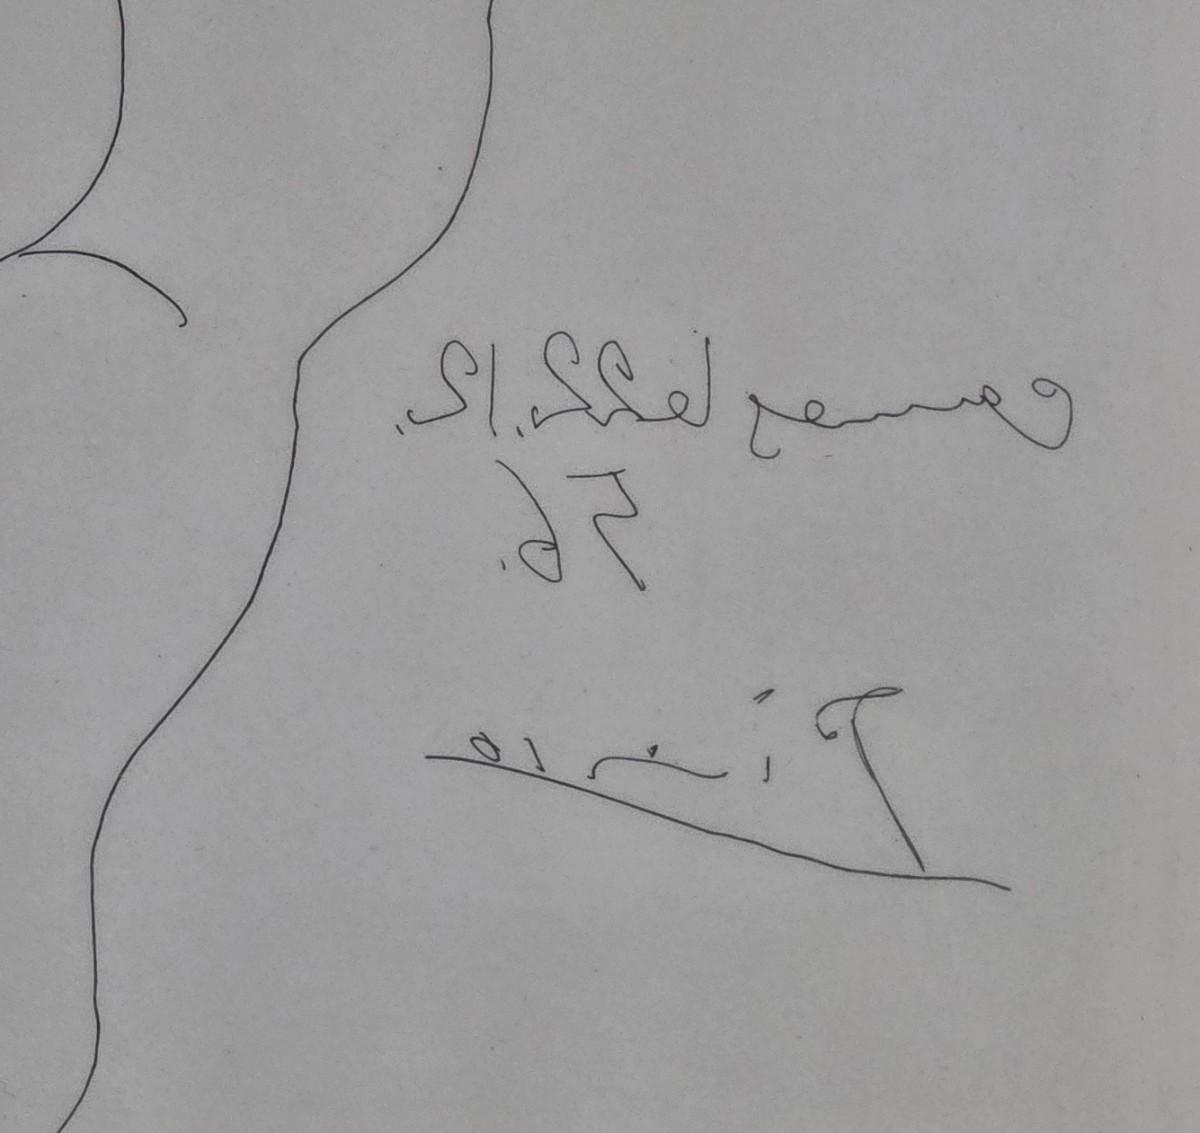 Cannes le 22.12.
56.